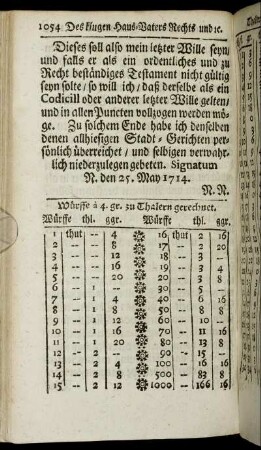 1054 Des klugen Haus-Vaters Rechts und ꝛc.
Dieses soll also mein letzter Wille seyn/
und falls er als ein ordentliches und zu
Recht beständiges Testament nicht gültig
seyn solte / so will ich / daß derselbe als ein
Codicill oder anderer letzter Wille gelten/
und in allen Puncten vollzogen werden mö-
ge. Zu solchem Ende habe ich denselben
denen allhiesigen Stadt-Gerichten per-
sönlich überreichet / und selbigen verwahr-
lich niederzulegen gebeten. Signatum
N. den 25. May 1714.
N. N.
Würffe à 4. gr. zu Thalern gerechnet.
Würffe thl. ggr. Würffe thl. ggr.
1 thut -- 4 16 thut 2 16
2 -- 8 17 -- 2 20
3 -- 12 18 -- 3 --
4 -- 16 19 -- 3 4
5 -- 20 20 -- 3 8
6 -- 1 -- 30 -- 5 --
7 -- 1 4 40 -- 6 16
8 -- 1 8 50 -- 8 8
9 -- 1 12 60 -- 10 --
10 -- 1 16 70 -- 11 16
11 -- 1 20 80 -- 13 8
12 -- 2 -- 90 -- 15 --
13 -- 2 4 100 -- 16 16
14 -- 2 8 500 -- 83 8
15 -- 2 12 1000 -- 166 16